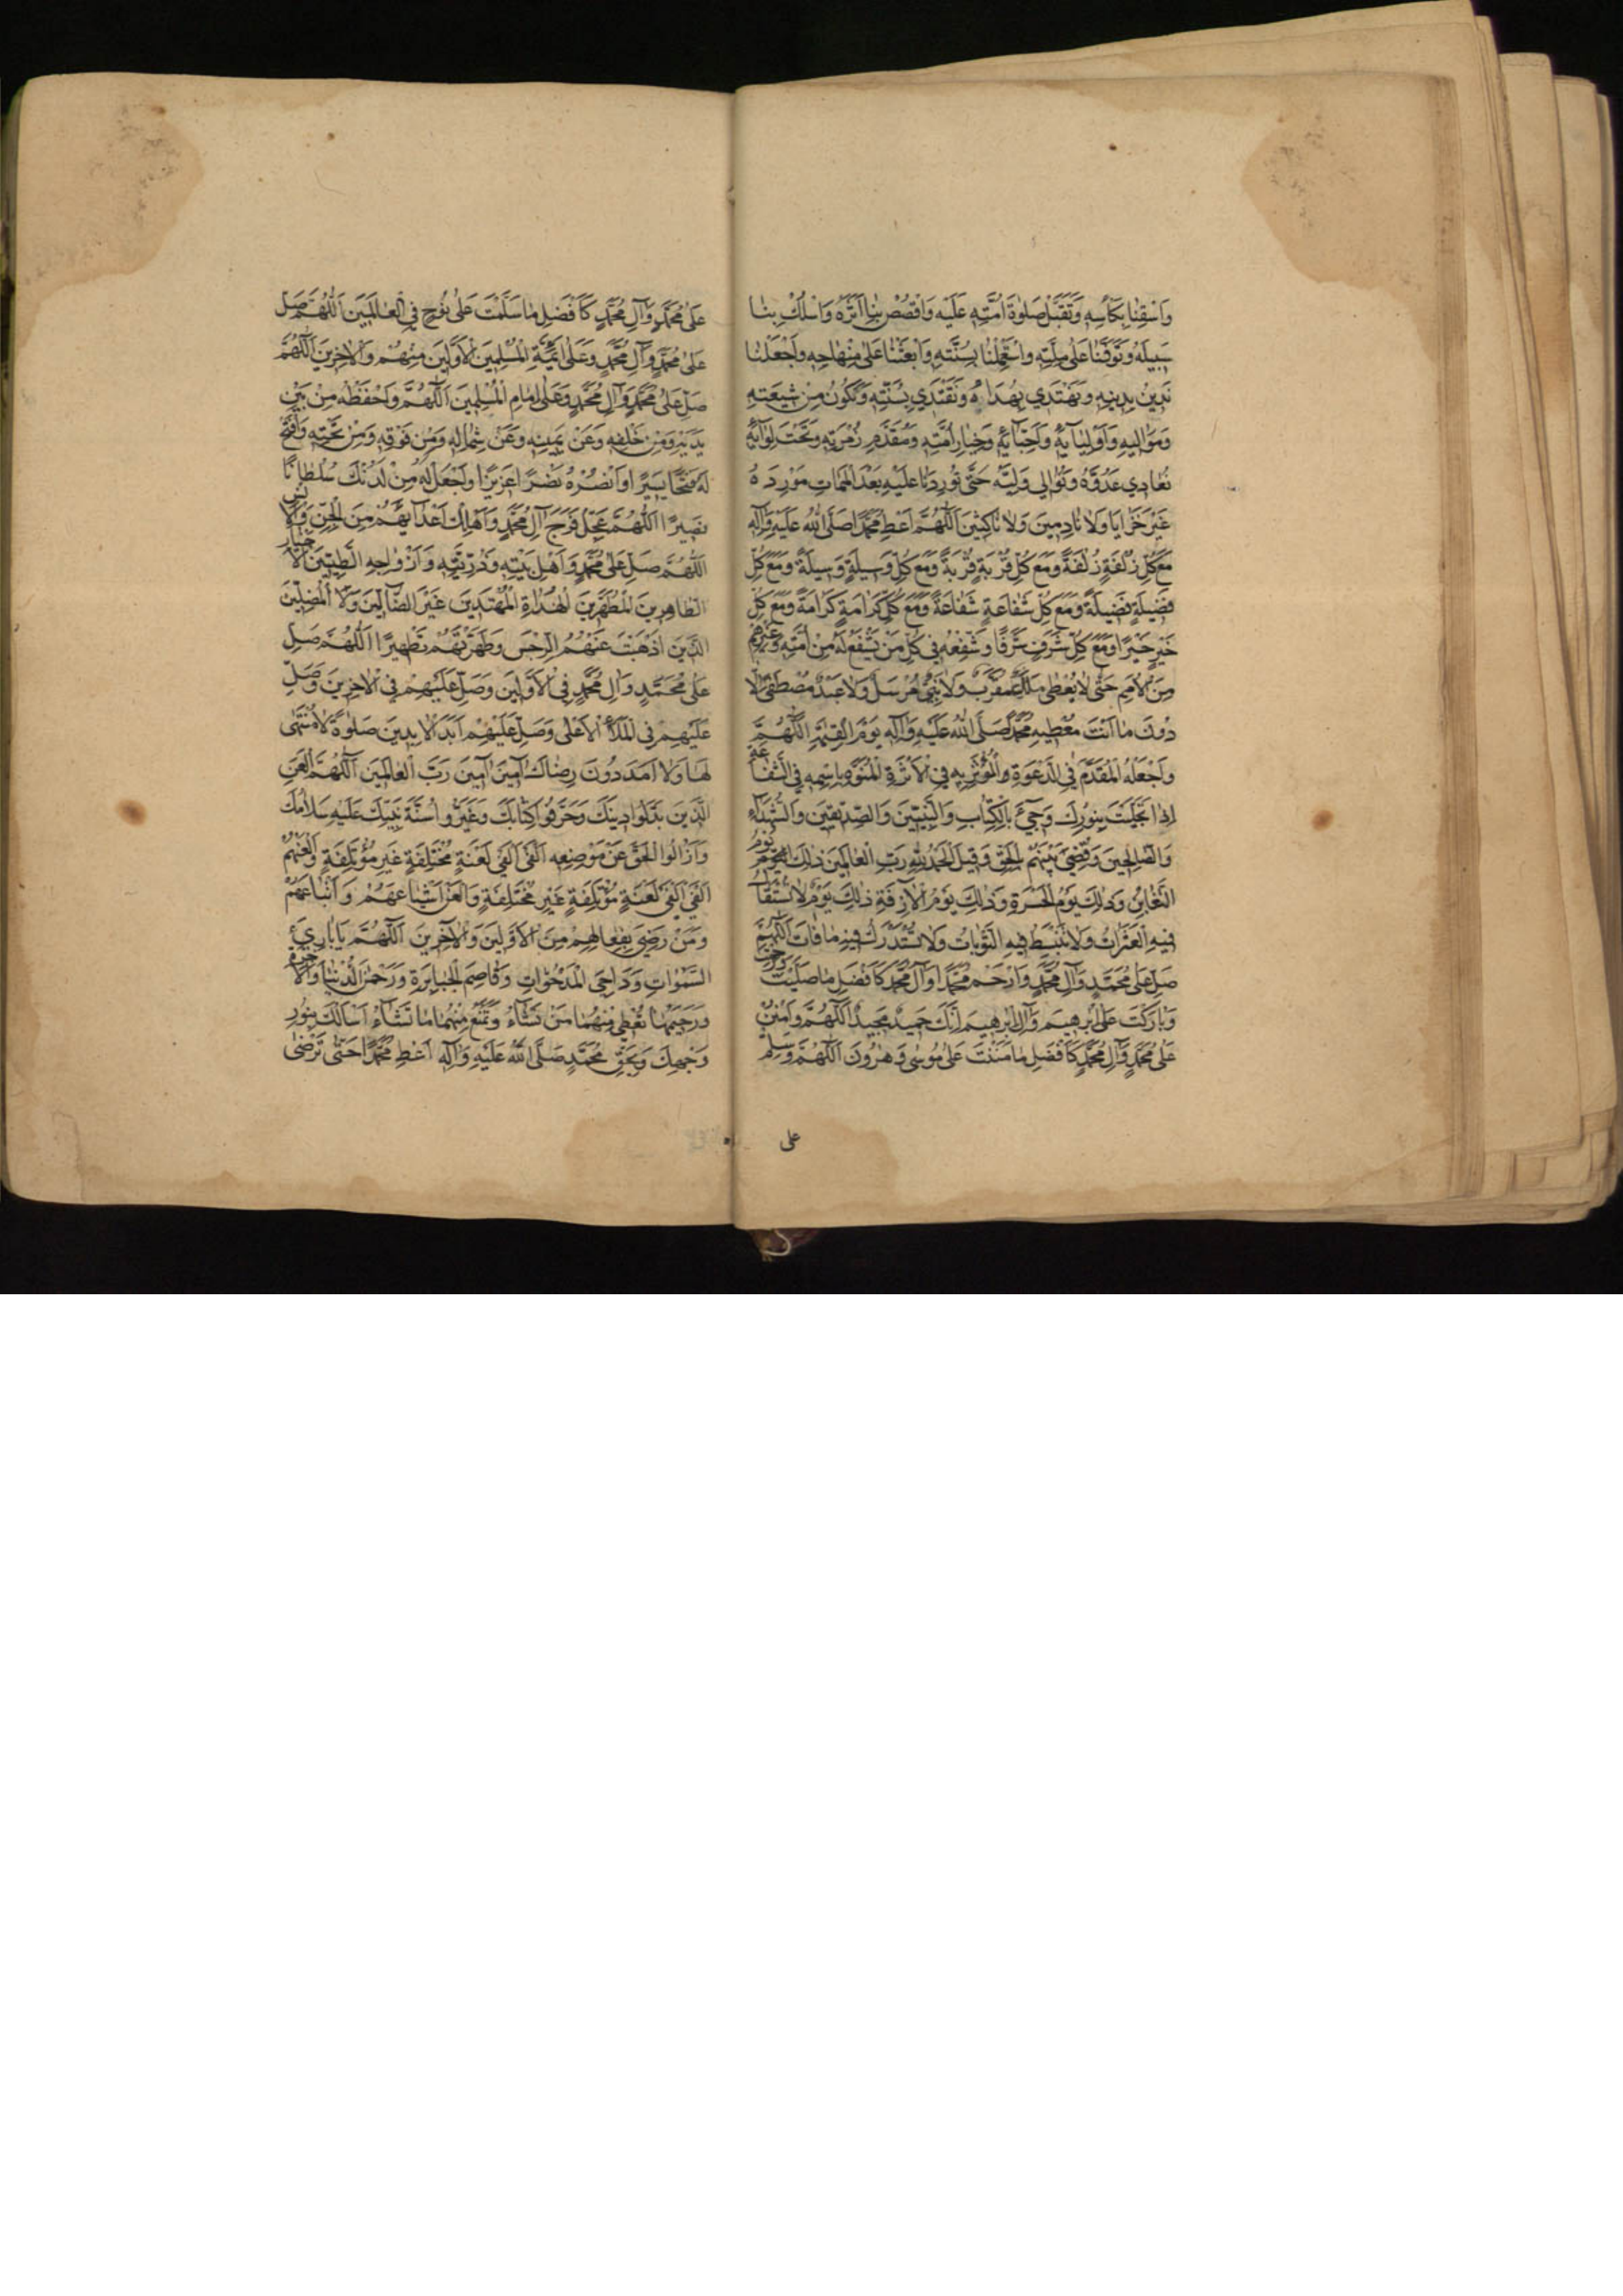 وَاسْقِنَا بِكَأْسِهِ وَتَقَبَّلْ صَلٰوةَ اُمَّتِهِ عَلَيْهِ وَاقْصُصْ بِنَا اَثَرَهُ وَاسْلُكْ بِنَا
سَبِيلَهُ وَتَوَفَّنَا عَلٰى مِلَّتِهِ وَاسْتَعْمِلْنَا بِسُنَّتِهِ وَابْعَثْنَا عَلٰى مِنْهَاجِهِ وَاجْعَلْنَا
نَدِينُ بِدِينِهِ وَنَهْتَدِي بِهُدَاهُ وَنَقْتَدِي بِسُنَّتِهِ وَنَكُونُ مِنْ شِيعَتِهِ
وَمَوَالِيهِ وَاَوْلِيَآئِهِ وَاَحِبَّآئِهِ وَخِيَارِ اُمَّتِهِ وَمُقَدَّمِ زُمْرَتِهِ وَتَحْتَ لِوَآئِهِ
نُعَادِي عَدُوَّهُ وَنُوَالِي وَلِيَّهُ حَتّٰى تُورِدَنَا عَلَيْهِ بَعْدَ الْمَمَاتِ مَوْرِدَهُ
غَيْرَ خَزَايَا وَلَا نَادِمِينَ وَلَا نَاكِثِينَ اَللّٰهُمَّ اَعْطِ مُحَمَّدًا صَلَّى اللهُ عَلَيْهِ وَآلِهِ
مَعَ كُلِّ زُلْفَةٍ زُلْفَةً وَمَعَ كُلِّ قُرْبَةٍ قُرْبَةً وَمَعَ كُلِّ وَسِيلَةٍ وَسِيلَةً وَمَعَ كُلِّ
فَضِيلَةٍ فَضِيلَةً وَمَعَ كُلِّ شَفَاعَةٍ شَفَاعَةً وَمَعَ كُلِّ كَرَامَةٍ كَرَامَةً وَمَعَ كُلِّ
خَيْرٍ خَيْرًا وَمَعَ كُلِّ شَرَفٍ شَرَفًا وَشَفِّعْهُ فِي كُلِّ مَنْ يَشْفَعُ لَهُ مِنْ اُمَّتِهِ وَغَيْرِهِمْ
مِنَ الْاُمَمِ حَتّٰى لَا يُعْطٰى مَلَكٌ مُقَرَّبٌ وَلَا نَبِيٌّ مُرْسَلٌ وَلَا عَبْدٌ مُصْطَفًى اِلَّا
دُونَ مَا اَنْتَ مُعْطِيهِ مُحَمَّدًا صَلَّى اللهُ عَلَيْهِ وَآلِهِ يَوْمَ الْقِيٰمَةِ اَللّٰهُمَّ
وَاجْعَلْهُ الْمُقَدَّمَ فِي الدَّعْوَةِ وَالْمُؤْثَرَ بِهِ فِي الْاَثَرَةِ الْمُنَوَّهَ بِاسْمِهِ فِي الشَّفَاعَةِ
اِذَا تَجَلَّيْتَ بِنُورِكَ وَجِيٓءَ بِالْكِتَابِ وَالنَّبِيِّينَ وَالصِّدِّيقِينَ وَالشُّهَدَآءِ
وَالصَّالِحِينَ وَقُضِيَ بَيْنَهُمْ بِالْحَقِّ وَقِيلَ الْحَمْدُ لِلّٰهِ رَبِّ الْعَالَمِينَ ذٰلِكَ يَوْمُ
التَّغَابُنِ وَذٰلِكَ يَوْمُ الْحَسْرَةِ وَذٰلِكَ يَوْمُ الْاٰزِفَةِ ذٰلِكَ يَوْمٌ لَا تُسْتَقَالُ
فِيهِ الْعَثَرَاتُ وَلَا تُبْسَطُ فِيهِ التَّوْبَاتُ وَلَا يُسْتَدْرَكُ فِيهِ مَا فَاتَ اَللّٰهُمَّ
صَلِّ عَلٰى مُحَمَّدٍ وَآلِ مُحَمَّدٍ وَارْحَمْ مُحَمَّدًا وَآلَ مُحَمَّدٍ كَاَفْضَلِ مَا صَلَّيْتَ وَرَحِمْتَ
وَبَارَكْتَ عَلٰى اِبْرٰهِيمَ وَآلِ اِبْرٰهِيمَ اِنَّكَ حَمِيدٌ مَجِيدٌ اَللّٰهُمَّ وَامْنُنْ
عَلٰى مُحَمَّدٍ وَآلِ مُحَمَّدٍ كَاَفْضَلِ مَا مَنَنْتَ عَلٰى مُوسٰى وَهٰرُونَ اَللّٰهُمَّ وَسَلِّمْ
على
عَلٰى مُحَمَّدٍ وَآلِ مُحَمَّدٍ كَاَفْضَلِ مَا سَلَّمْتَ عَلٰى نُوحٍ فِي الْعَالَمِينَ اَللّٰهُمَّ صَلِّ
عَلٰى مُحَمَّدٍ وَآلِ مُحَمَّدٍ وَعَلٰى اَئِمَّةِ الْمُسْلِمِينَ الْاَوَّلِينَ مِنْهُمْ وَالْاٰخِرِينَ اَللّٰهُمَّ
صَلِّ عَلٰى مُحَمَّدٍ وَآلِ مُحَمَّدٍ وَعَلٰى اِمَامِ الْمُسْلِمِينَ اَللّٰهُمَّ وَاحْفَظْهُ مِنْ بَيْنِ
يَدَيْهِ وَمِنْ خَلْفِهِ وَعَنْ يَمِينِهِ وَعَنْ شِمَالِهِ وَمِنْ فَوْقِهِ وَمِنْ تَحْتِهِ وَافْتَحْ
لَهُ فَتْحًا يَسِيرًا وَانْصُرْهُ نَصْرًا عَزِيزًا وَاجْعَلْ لَهُ مِنْ لَدُنْكَ سُلْطَانًا
نَصِيرًا اَللّٰهُمَّ عَجِّلْ فَرَجَ آلِ مُحَمَّدٍ وَاَهْلِكْ اَعْدَآئَهُمْ مِنَ الْجِنِّ وَالْاِنْسِ
اَللّٰهُمَّ صَلِّ عَلٰى مُحَمَّدٍ وَاَهْلِ بَيْتِهِ وَذُرِّيَّتِهِ وَاَزْوَاجِهِ الطَّيِّبِينَ الْاَخْيَارِ
الطَّاهِرِينَ الْمُطَهَّرِينَ الْهُدَاةِ الْمُهْتَدِينَ غَيْرَ الضَّآلِّينَ وَلَا الْمُضِلِّينَ
الَّذِينَ اَذْهَبْتَ عَنْهُمُ الرِّجْسَ وَطَهَّرْتَهُمْ تَطْهِيرًا اَللّٰهُمَّ صَلِّ
عَلٰى مُحَمَّدٍ وَآلِ مُحَمَّدٍ فِي الْاَوَّلِينَ وَصَلِّ عَلَيْهِمْ فِي الْاٰخِرِينَ وَصَلِّ
عَلَيْهِمْ فِي الْمَلَأِ الْاَعْلٰى وَصَلِّ عَلَيْهِمْ اَبَدَ الْاٰبِدِينَ صَلٰوةً لَا مُنْتَهٰى
لَهَا وَلَا اَمَدَ دُونَ رِضَاكَ آمِينَ آمِينَ رَبَّ الْعَالَمِينَ اَللّٰهُمَّ الْعَنِ
الَّذِينَ بَدَّلُوا دِينَكَ وَحَرَّفُوا كِتَابَكَ وَغَيَّرُوا سُنَّةَ نَبِيِّكَ عَلَيْهِ سَلَامُكَ
وَاَزَالُوا الْحَقَّ عَنْ مَوْضِعِهِ اَلْفَيْ اَلْفَيْ لَعْنَةٍ مُخْتَلِفَةٍ غَيْرِ مُؤْتَلِفَةٍ وَالْعَنْهُمْ
اَلْفَيْ اَلْفَيْ لَعْنَةٍ مُؤْتَلِفَةٍ غَيْرِ مُخْتَلِفَةٍ وَالْعَنْ اَشْيَاعَهُمْ وَاَتْبَاعَهُمْ
وَمَنْ رَضِيَ بِفِعَالِهِمْ مِنَ الْاَوَّلِينَ وَالْاٰخِرِينَ اَللّٰهُمَّ يَا بَارِئَ
السَّمٰوَاتِ وَدَاحِيَ الْمَدْحُوَّاتِ وَقَاصِمَ الْجَبَابِرَةِ وَرَحْمٰنَ الدُّنْيَا وَالْاٰخِرَةِ
وَرَحِيمَهُمَا تُعْطِي مِنْهُمَا مَنْ تَشَآءُ وَتَمْنَعُ مِنْهُمَا مَا تَشَآءُ اَسْاَلُكَ بِنُورِ
وَجْهِكَ وَبِحَقِّ مُحَمَّدٍ صَلَّى اللهُ عَلَيْهِ وَآلِهِ اَعْطِ مُحَمَّدًا حَتّٰى تَرْضٰى